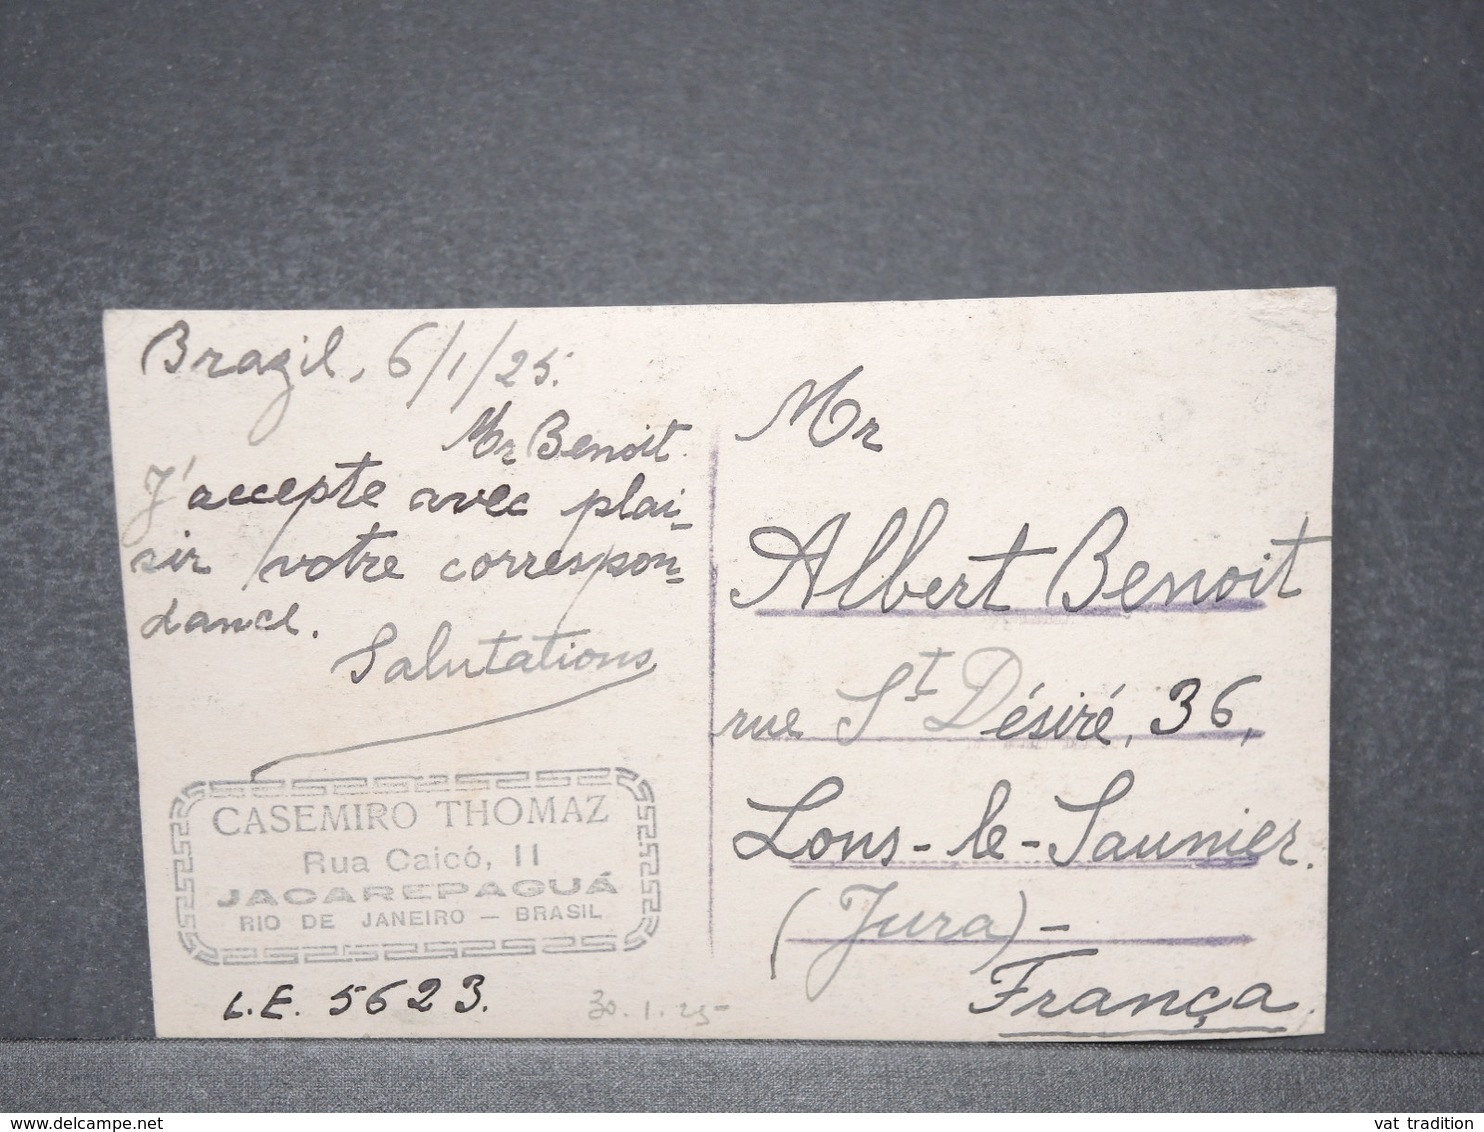 Brazil, 6/1/25.
Mr Benoit.
J'accepte avec plai-
sir votre correspon-
dance.
Salutations
CASEMIRO THOMAZ
Rua Caicó, 11
JACAREPAGUÁ
RIO DE JANEIRO – BRASIL
L.E. 5623.
30.1.25-
Mr
Albert Benoit
rue St Désiré, 36,
Lons-le-Saunier.
(Jura)-
França
www.delcampe.net
vat tradition